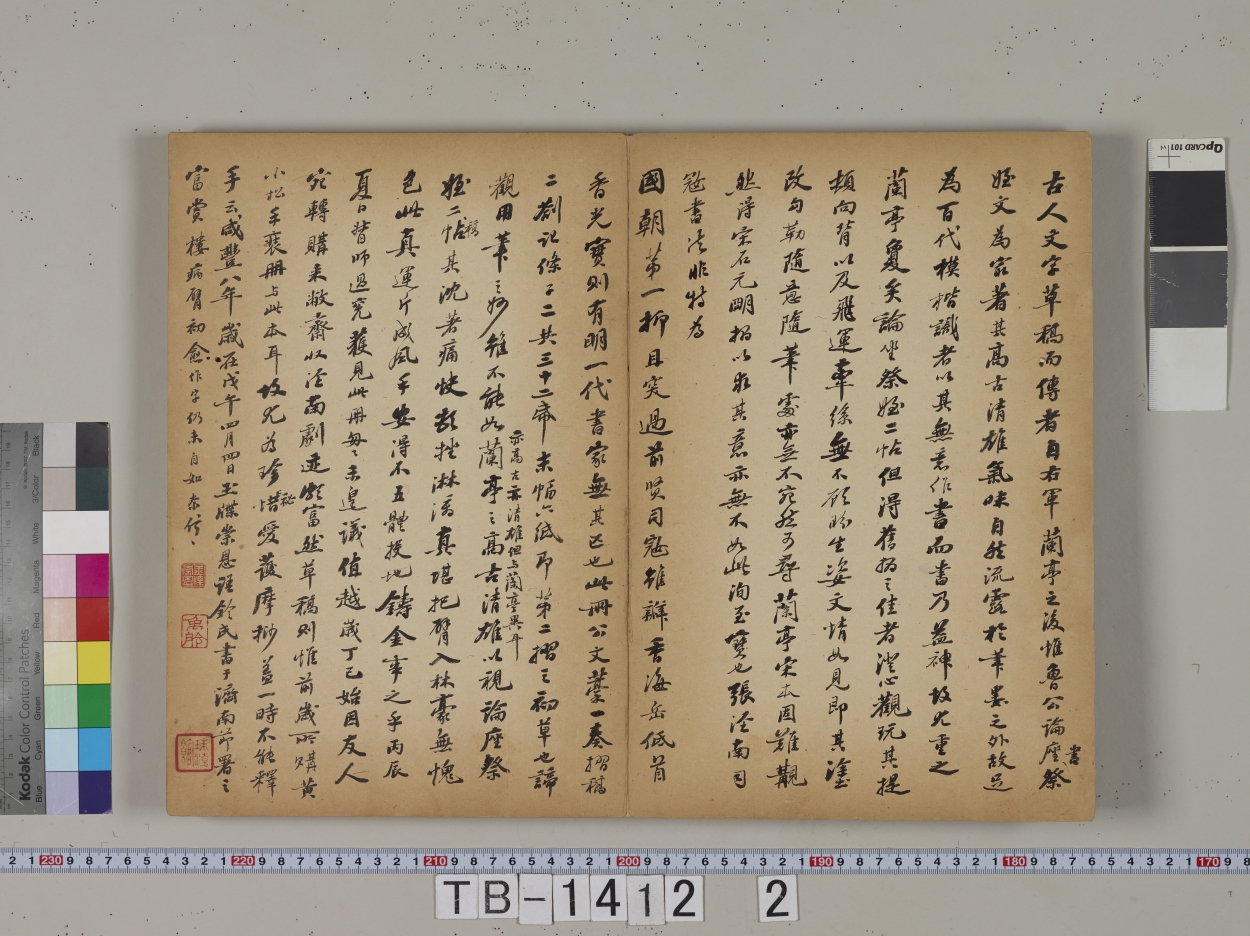 古人文字草稿而傳者自右軍蘭亭之後惟魯公論座書祭
姪文為家著其高古清雄氣味自然流露於筆墨之外故足
為百代模楷識者以其無意作書而書乃益神故尤重之
蘭亭夐矣論坐祭姪二帖但得舊搨之佳者澄心觀玩其提
頓向背以及飛運牽絲無不顧盼生姿文情如見即其塗
改勾勒隨意隨筆處亦無不宛然可尋蘭亭宋本固難覯
然得宋石元明搨以求其意亦無不如此洵至寶也張涇南司
寇書法非特為
國朝第一抑且突過前賢司寇雖瓣香海岳低首
香光實則有明一代書家無其匹也此冊公文藁一奏摺稿
二劄記條子二共三十二帋末幅六紙即第二摺之初草也諦
觀用筆之妙雖不能如蘭亭之高古清雄以視論座祭
亦高古亦清雄但與蘭亭異耳
姪二帖稿其沈著痛快頓挫淋漓真堪把臂入林豪無愧
色此真運斤成風手安得不五體投地鑄金事之乎丙辰
夏日皆師過兖獲見此冊匆匆未遑議值越歲丁巳始因友人
宛轉購來敝齋收涇南劇迹頗富然草稿則惟前歲所購黃
小松手裝冊與此本耳故尤為珍秘惜愛護摩挲益一時不能釋
手云咸豐八年歲在戊午四月四日玉牒崇恩語鈴氏書于濟南節署之
富賞樓病臂初愈作字仍未自如奈何
Kodak Color Control Patches
Blue
Cyan
Green
Yellow
Red
Magenta
White
3/Color
Black
QPCARD 101
230
220
210
200
190
180
170
TB-1412 2